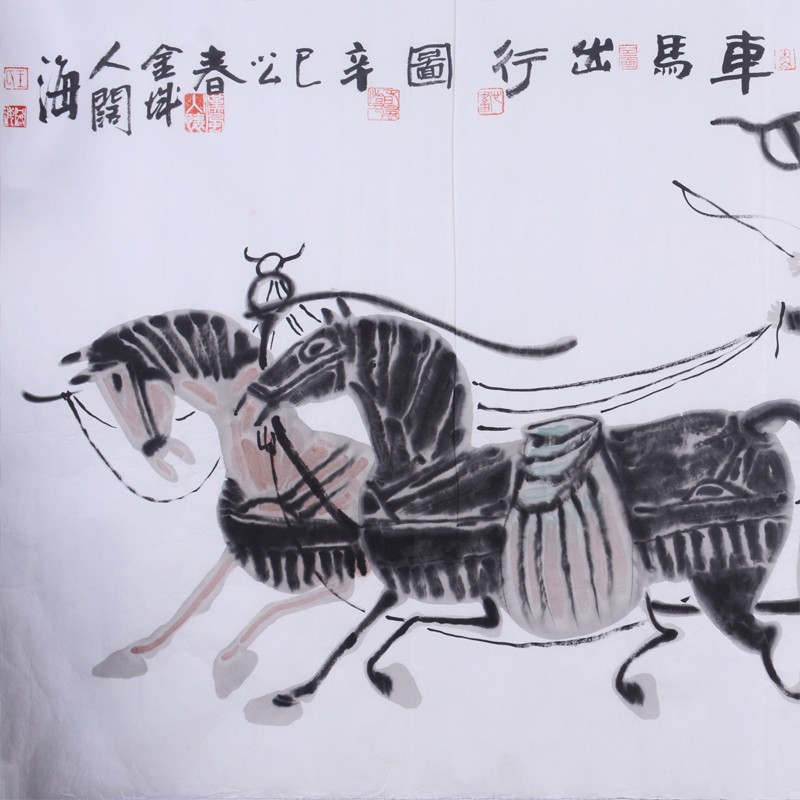 車馬出行圖辛巳公春金城人闊海